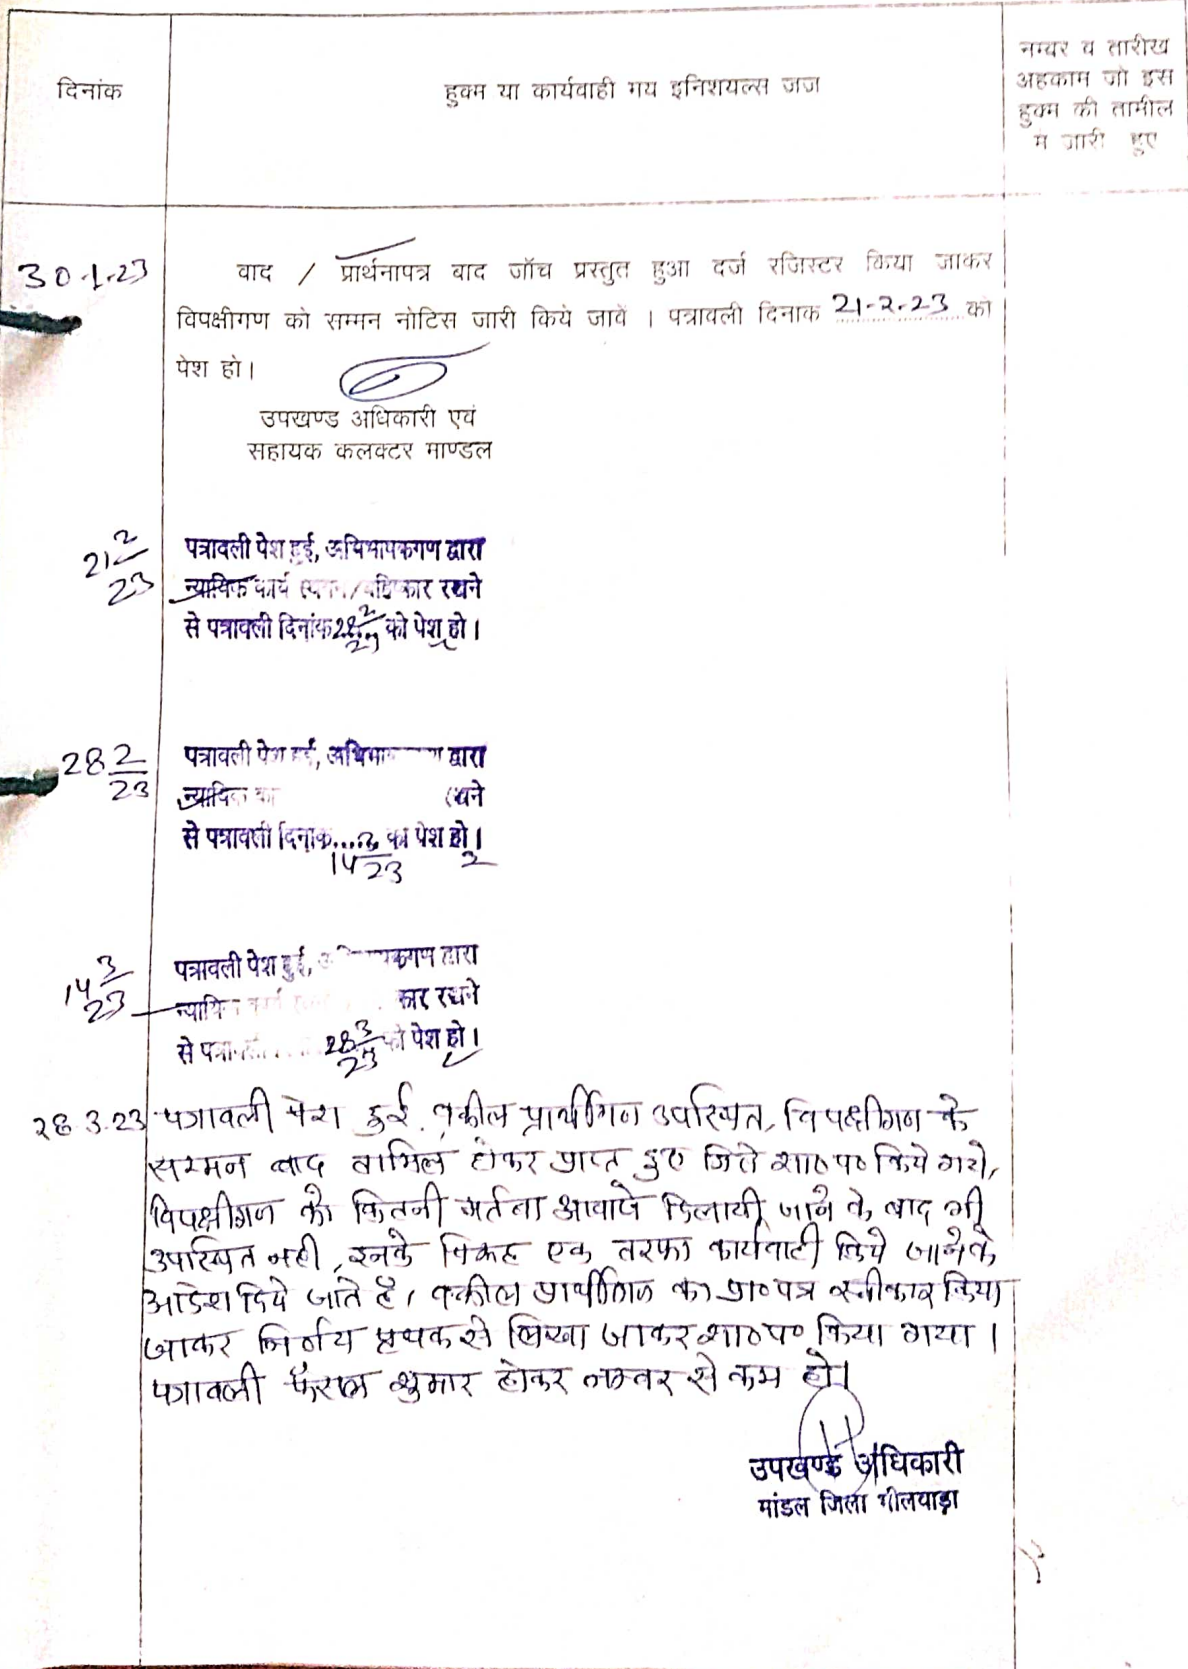 दिनांक
हुक्म या कार्यवाही मय इनिशयल्स जज
नम्बर व तारीख
अहकाम जो इस
हुक्म की तामील
में जारी हुए
30-1-23
वाद / प्रार्थनापत्र बाद जॉच प्रस्तुत हुआ दर्ज रजिस्टर किया जाकर
विपक्षीगण को सम्मन नोटिस जारी किये जावें । पत्रावली दिनाक 21-2-23 को
पेश हो।
उपखण्ड अधिकारी एवं
सहायक कलक्टर माण्डल
21 2/23
पत्रावली पेश हुई, अभिभाषकगण द्वारा
न्यायिक कार्य स्थगन/बहिष्कार रखने
से पत्रावली दिनांक 28 2/23 को पेश हो।
28 2/23
पत्रावली पेश हुई, द्वारा
न्यायिक का रखने
से पत्रावली दिनांक 14 3/23 को पेश हो।
14 3/23
पत्रावली पेश हुई, द्वारा
न्यायिक कार्य रखने
से 28 3/23 को पेश हो।
28.3.23 पत्रावली पेश हुई, वकील प्रार्थीगण उपस्थित, विपक्षीगण के
सम्मन बाद तामिल होकर प्राप्त हुए जिसे शा०प० किये गये,
विपक्षीगण को कितनी मर्तबा आवाजे दिलायी जाने के बाद भी
उपस्थित नही, इनके विरूद्ध एक तरफा कार्यवाही किये जाने के
आदेश दिये जाते है, वकील प्रार्थीगण का प्रा०पत्र स्वीकार किया
जाकर निर्णय प्रथक से लिखा जाकर शा०प० किया गया।
पत्रावली फैसल शुमार होकर नम्बर से कम हो।
उपखण्ड अधिकारी
मांडल जिला भीलवाड़ा